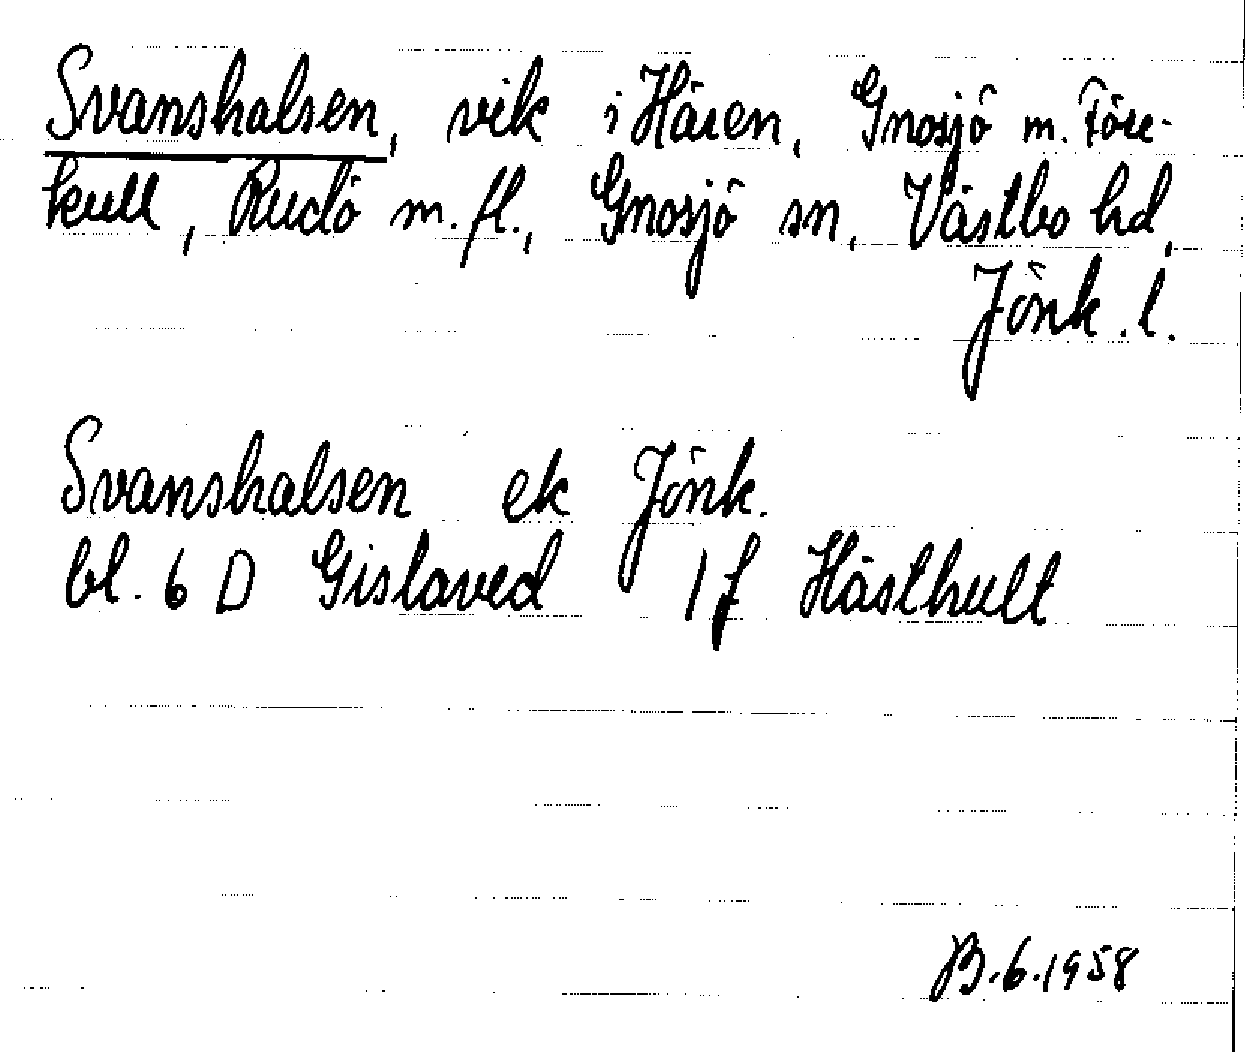 Svanshalsen, vik i Hären, Gnosjö m. Före-
kull, Rudö m.fl., Gnosjö sn, Västbo hd,
Jönk. l.
Svanshalsen ek Jönk.
bl. 6 D Gislaved 1 f Hästhult
B.6.1958